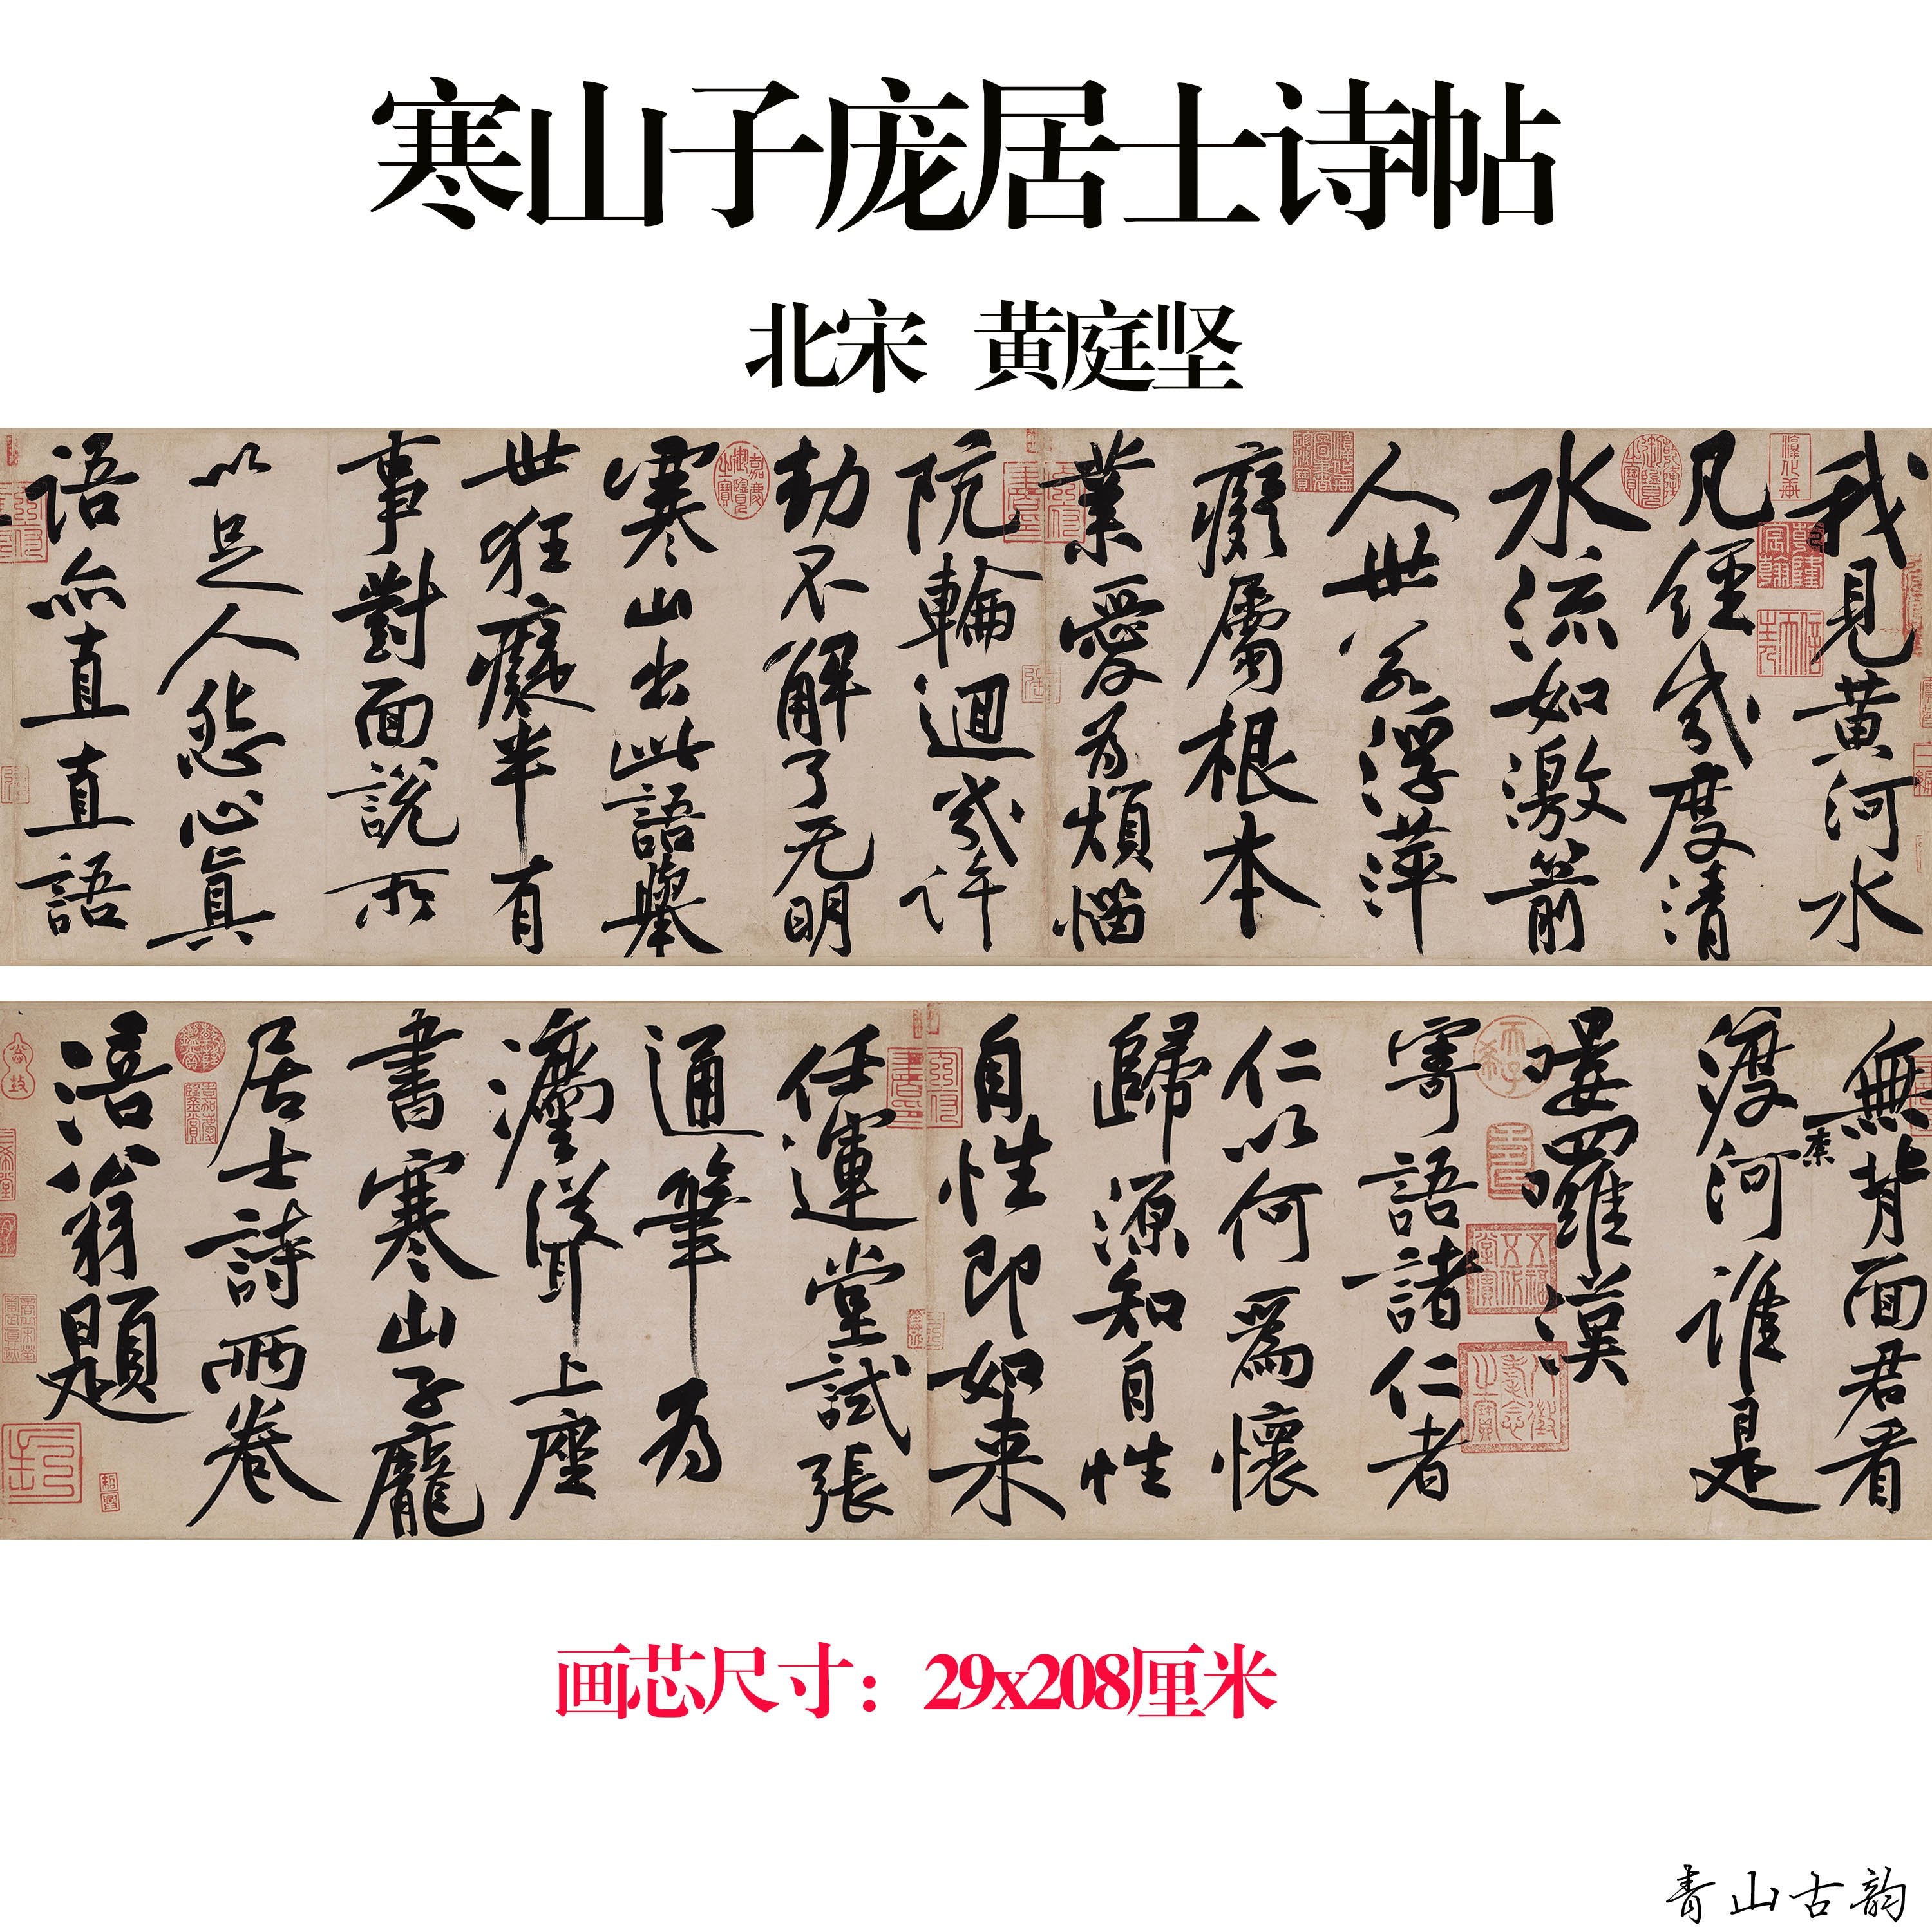 寒山子庞居士诗帖
北宋 黄庭坚
我見黄河水
凡経幾度清
水流如激箭
人世若浮萍
癡屬根本
業愛為煩惱
阬輪迴幾許
劫不解了无明
寒山出此語舉
世狂癡半有
事對面說所
以足人怨心真
語亦直直語
無背面君看
渡奈河谁是
嘍囉漢
寄語諸仁者
仁以何為懷
歸源知自性
自性即如来
任運堂試張
通筆为
法聳上座
書寒山子龐
居士詩兩卷
涪翁題
画芯尺寸：29x208厘米
青山古韵